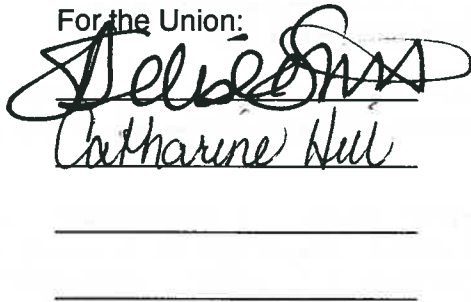 For the Union:
Catharine Hill